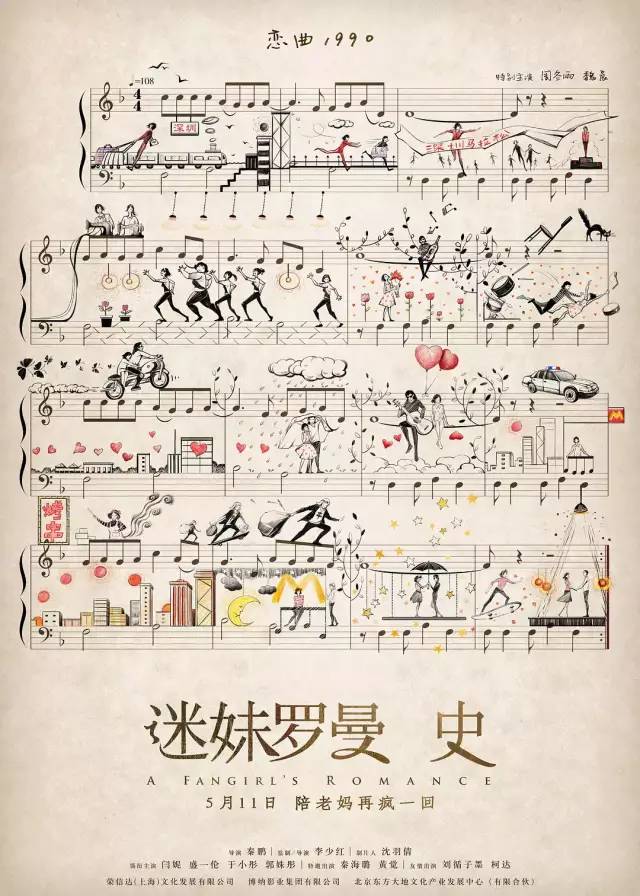 恋曲1990
特别主演 周冬雨 魏晨
=108
4
4
深圳
深圳马拉松
烤串
M
迷妹罗曼 史
A FANGIRL'S ROMANCE
5月11日 陪老妈再疯一回
导演 秦鹏 | 监制/导演 李少红 | 制片人 沈羽倩
领衔主演 闫妮 盛一伦 于小彤 郭姝彤 | 特邀出演 秦海璐 黄觉 | 友情出演 刘循子墨 柯达
荣信达(上海)文化发展有限公司 博纳影业集团有限公司 北京东方大地文化产业发展中心(有限合伙)